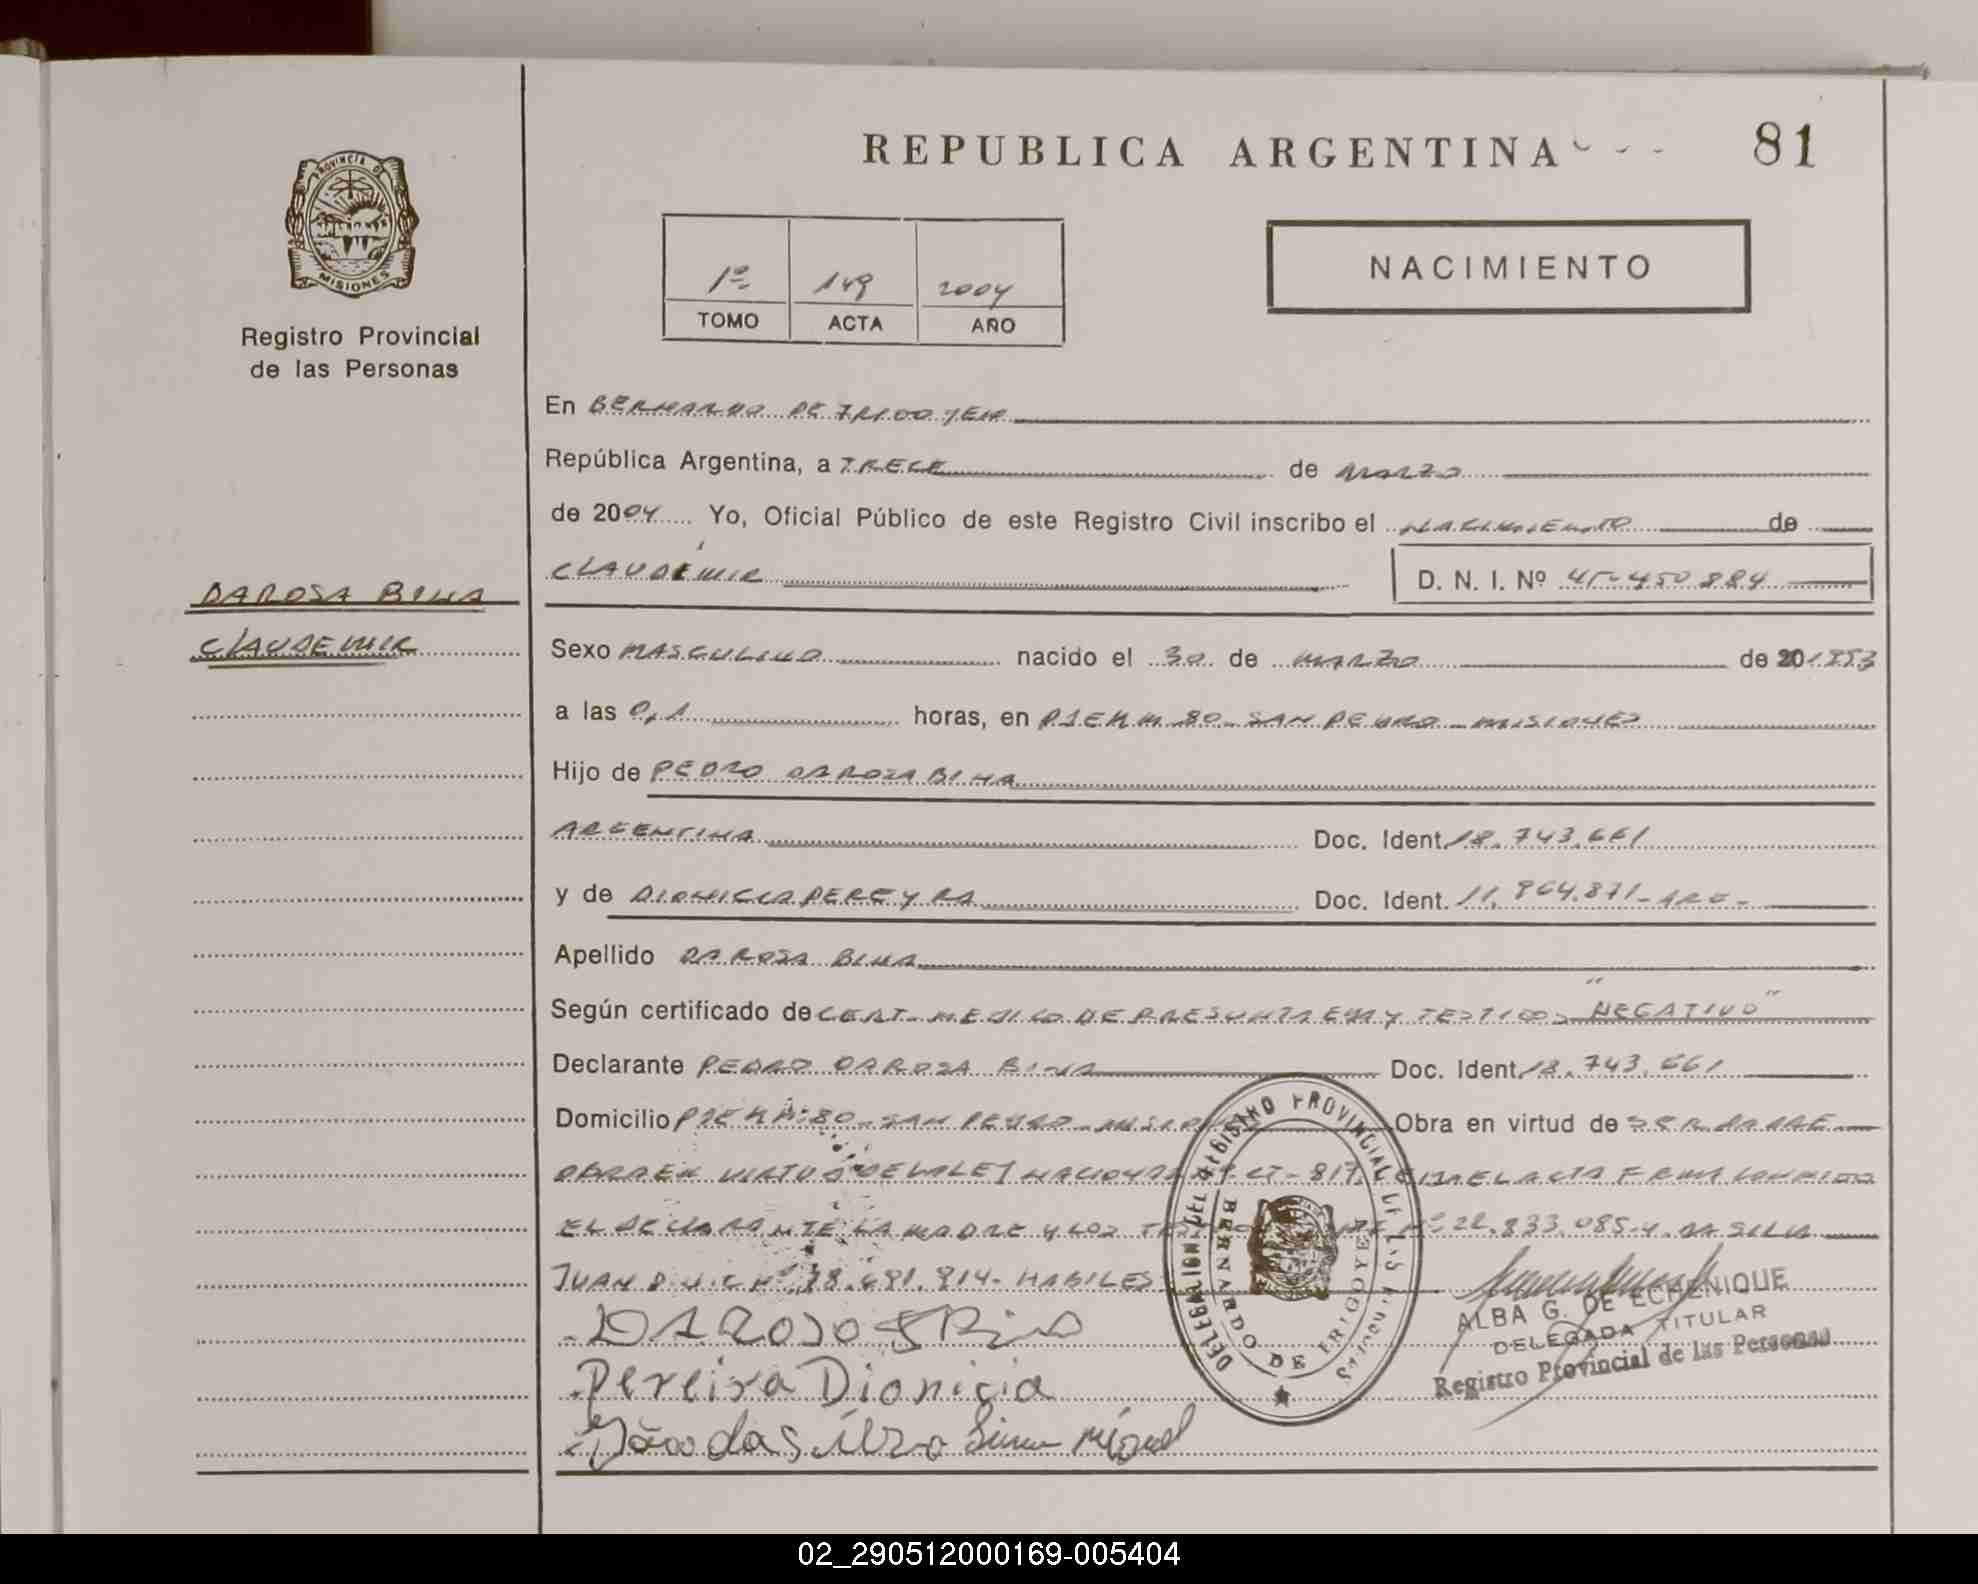 REPUBLICA ARGENTINA
81
PROVINCIA DE
MISIONES
Registro Provincial
de las Personas
1º 149 2004
TOMO ACTA AÑO
NACIMIENTO
En BERNARDO DE IRIGOYEN
República Argentina, a TRECE de MARZO
de 2004 Yo, Oficial Público de este Registro Civil inscribo el NACIMIENTO de
CLAUDEMIR D. N. I. Nº 45.450.884
DAROSA BINA
CLAUDEMIR
Sexo MASCULINO nacido el 30 de MARZO de 20 1993
a las horas, en PJE KM. 80 - SAN PEDRO - MISIONES
Hijo de PEDRO DAROSA BINA
ARGENTINA Doc. Ident. 18.743.661
y de DIONICIA PEREYRA Doc. Ident. 11.964.871 - ARG -
Apellido DAROSA BINA
Según certificado de CERT. MEDICO DE PRESUNTA EDAD Y TESTIGOS "NEGATIVO"
Declarante PEDRO DAROSA BINA Doc. Ident. 18.743.661
Domicilio PJE KM. 80 - SAN PEDRO - MISIONES Obra en virtud de SER PADRE
OBRA EN VIRTUD DE LA LEY NACIONAL ACTA FIRMA CONMIGO
EL DECLARANTE LA MADRE Y LOS Nº 22.833.085 - Y DA SILVA
JUAN D.N.I. Nº 18.681.914 - HABILES
Pereira Dionicia
João da Silva Miguel
DELEGACION DEL REGISTRO PROVINCIAL DE LAS PERSONAS
BERNARDO DE IRIGOYEN
ALBA G. DE ECHENIQUE
DELEGADA TITULAR
Registro Provincial de las Personas
02_290512000169-005404